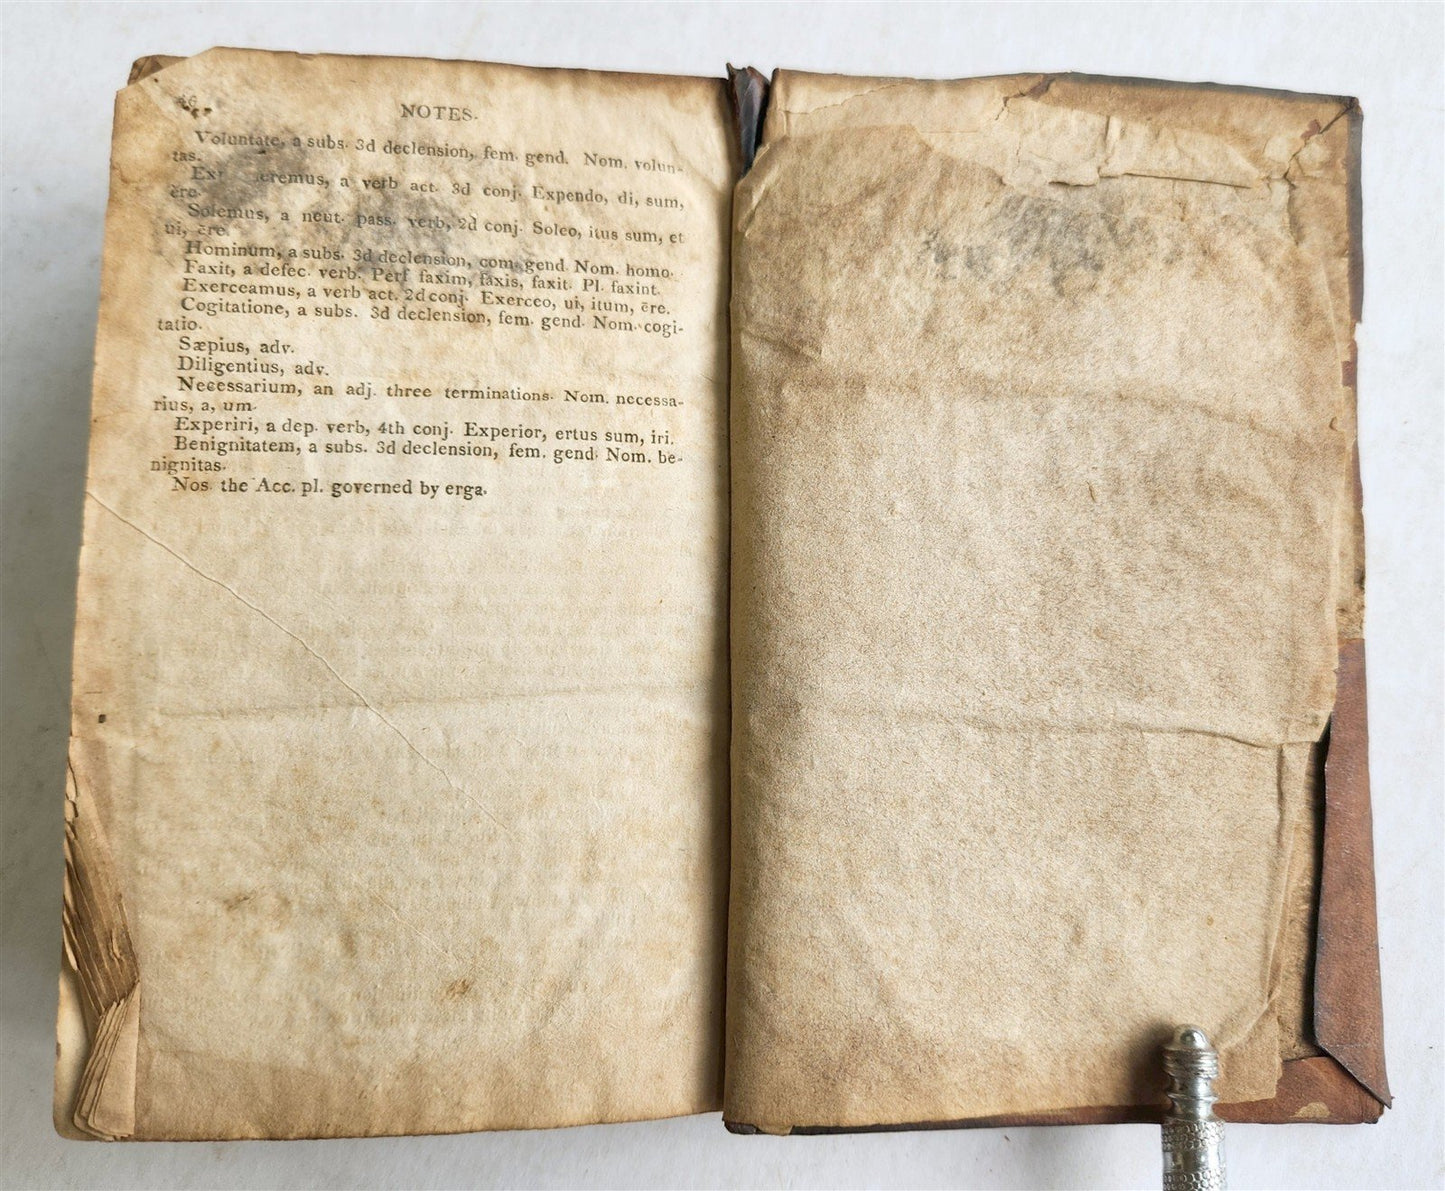 NOTES.
Voluntate, a subs. 3d declension, fem. gend. Nom. volun-
tas.
a verb act. 3d conj. Expendo, di, sum,
ĕre.
Solemus, a neut. pass. verb, 2d conj. Soleo, itus sum, et
ui, ēre.
Hominum, a subs. 3d declension, com. gend. Nom. homo.
Faxit, a defec. verb. Perf faxim, faxis, faxit. Pl. faxint.
Exerceamus, a verb act. 2d conj. Exerceo, ui, itum, ēre.
Cogitatione, a subs. 3d declension, fem. gend. Nom. cogi-
tatio.
Sæpius, adv.
Diligentius, adv.
Necessarium, an adj. three terminations. Nom. necessa-
rius, a, um.
Experiri, a dep. verb, 4th conj. Experior, ertus sum, iri.
Benignitatem, a subs. 3d declension, fem. gend. Nom. be-
nignitas.
Nos. the Acc. pl. governed by erga.